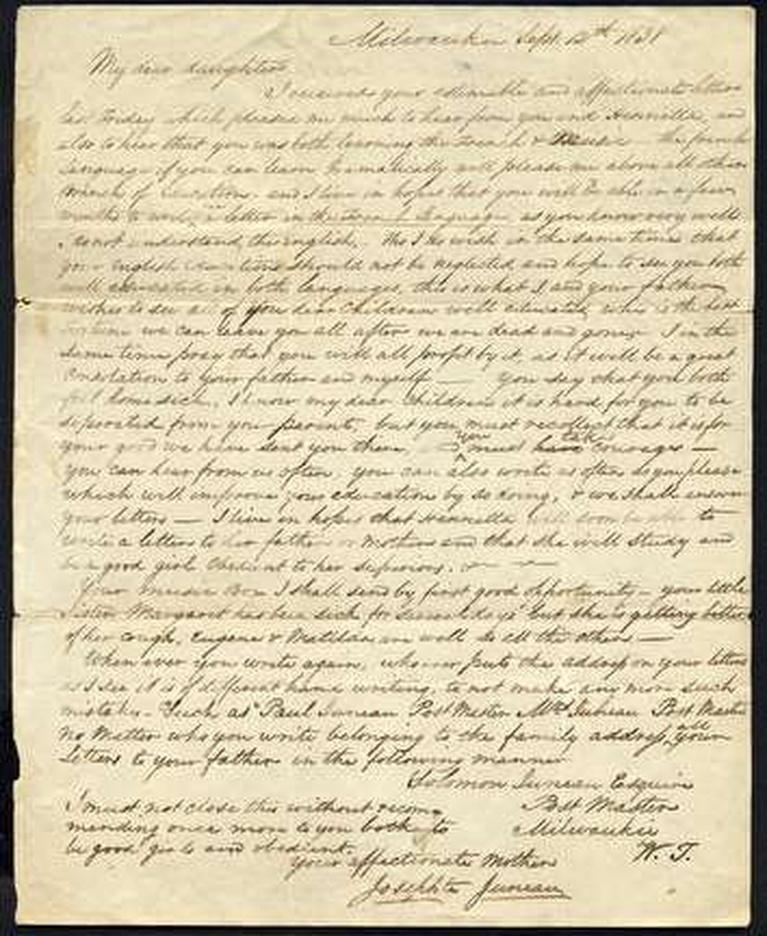 Milwaukie Sept. 12th 1838
My dear daughters
I received your estimable and affectionate letters
last Friday which pleases me much to hear from you and Henriella, and
also to hear that you was both learning the French & Music – the french
language if you can learn Gramatically will please me above all other
branch of educations. and I live in hopes that you will be able in a few
months to write a letter in the French language, as you know very well
I do not understand the English. tho I do wish in the same time that
your English educations should not be neglected and hope to see you both
well educated in both languages, this is what I and your father
wishes to see all of you dear Children well educated, this is the best
fortune we can leave you all after we are dead and gone. I in the
same time pray that you will all profit by it, as it will be a great
Consolation to your father and myself — you say that you both
feel home sick, I know my dear Children it is hard for you to be
separated from your parents, but you must recollect that it is for
your good we have sent you there. you must have take Courage —
you can hear from us often, you can also write as often as you please
which will improve your education by so doing, & we shall answer
your letters — I live in hopes that Henriella will soon be able to
write a letters to her father or Mother and that she will study and
be a good girl Obedient to her superiors.
Your music Box I shall send by first good opportunity – your little
sister Margaret has been sick for several days but she is getting better
of her cough, Eugene & Matilda are well so all the others —
When ever you write again, who ever puts the address on your letters
as I see it is of different hand writing, to not make any more such
mistake – Such as Paul Juneau Post Master Mrs. Juneau Post Master
No Matter who you write belonging to the family address, all your
Letters to your father in the following manner
Solomon Juneau Esquire
Post Master
Milwaukie
W. T.
I must not close this without recom-
mending once more to you both to
be good girls and obedient.
Your affectionate Mother
Josephte Juneau